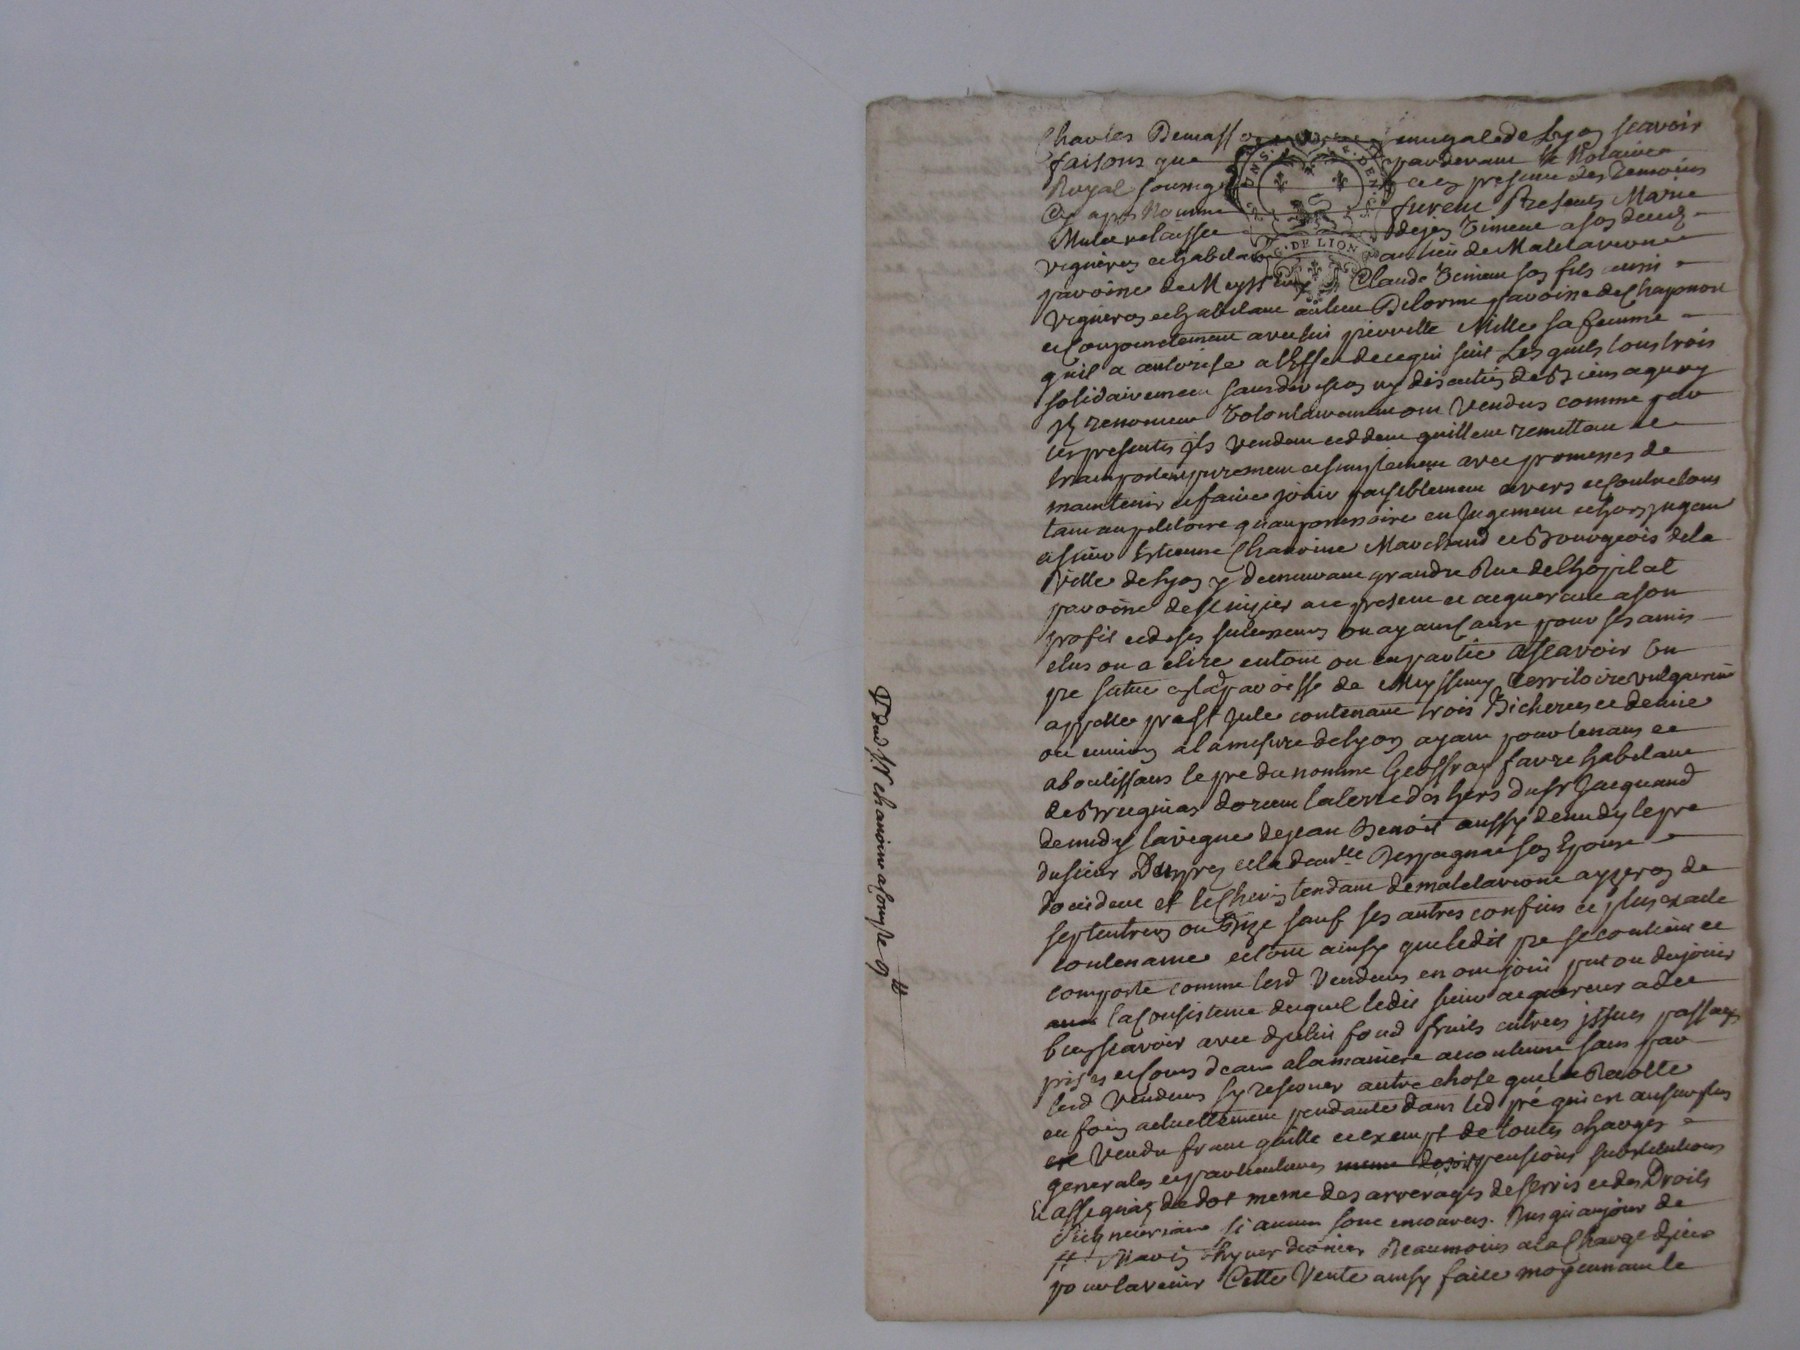 Charles Demasso seneschal de Lyon scavoir
faisons que pardevant le Notaire
Royal soussigné et en presence des temoins
Cy apres Nommes furent Presents Marie
Mulet relaissee de jean Timent a son deceds
vigneron et habitant au lieu de Malelavione
paroisse de Messimy Claude Timent son fils aussi
vigneron et habitant au lieu Delorme paroisse de Chaponost
et Conjointement avec luy pierrette Mille sa femme
quil a autorise a l'Effet de ce qui suit Les quels tous trois
solidairement sans division ny discution de Biens a quoy
ils renoncent Volontairement ont Vendus comme par
ces presentes ils vendent ceddent quittent remettent et
transportent purement et simplement avec promesses de
maintenir et faire jouir paisiblement envers et contre tous
tant au petitoire qu'au possessoire en Jugement et hors jugem.t
a sieur Estienne Chanoine Marchand et Bourgeois de la
Ville de Lyon y demeurant grande Rue de lhopital
paroisse de st nizier icy present et acquerant a son
profit et de ses successeurs ou ayant Cause pour ses amis
elus ou a elire en tout ou en partie Ascavoir Un
pré scitué en lad paroisse de Messimy territoire vulgairem.t
appelle pre st Jule contenant trois Bicherees et demie
ou environ a la mesure de Lyon ayant pour tenans et
aboutissans le pre du nomme Geoffray favre habitant
de Brugnias dorient la terre des hers du sr Jacquand
de midy la vigne de jean Benoit aussy de midy le pre
du sieur Dupré et la dem.lle Despagnac son Epouse
doccident et le Chemin tendant de malelavione a yzeron de
septentrion ou Bize sauf ses autres confins et plus exacte
contenance et tout ainsy que ledit pre se contient et
comporte comme lesd Vendeurs en ont joui put ou du jouir
la Consistence duquel ledit sieur acquereur a dit
bien scavoir avec du plus fond fruits entrees issues passages
prises et Cours deau a la maniere accoutumé sans par
lesd Vendeurs sy reserver autre chose que la Recolte
en foin actuellement pendante dans led pré qui est au surplus
Vendu franc quitte et exempt de toutes charges
generales et particulieres pensions substitutions
Et assignaon de dot meme des arrerages de servis et des Droits
Seigneuriaux si aucun sont encourus. Jusqu'au jour de
st Martin hyver dernier Neaumoins a la Charge d'iceux
pour lavenir Cette Vente ainsy faite moyennant le
Pr dud sr chanoine a Compte 9